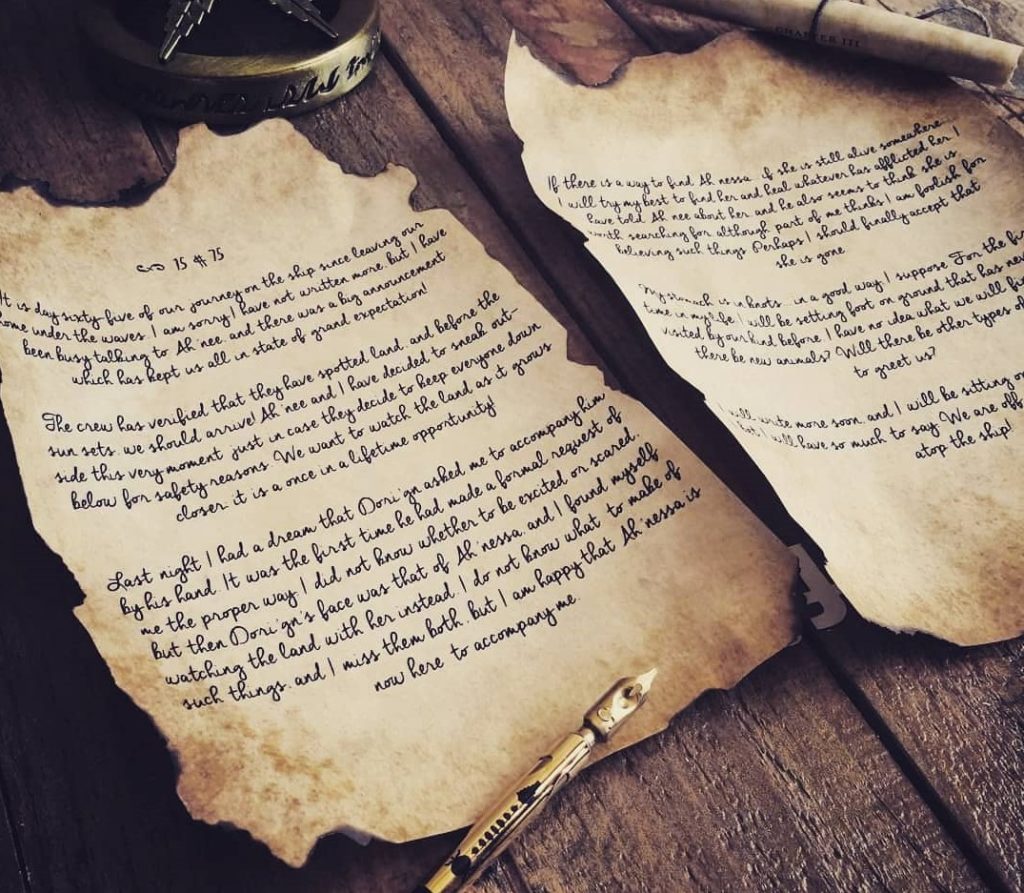 CHAPTER III
15 # 75
It is day sixty-five of our journey on the ship since leaving our
home under the waves. I am sorry I have not written more, but I have
been busy talking to Ah'nee, and there was a big announcement
which has kept us all in state of grand expectation!
The crew has verified that they have spotted land, and before the
sun sets, we should arrive! Ah'nee and I have decided to sneak out-
side this very moment, just in case they decide to keep everyone down
below for safety reasons. We want to watch the land as it grows
closer, it is a once in a lifetime opportunity!
Last night I had a dream that Dori'gn asked me to accompany him
by his hand. It was the first time he had made a formal request of
me the proper way. I did not know whether to be excited or scared,
but then Dori'gn's face was that of Ah'nessa, and I found myself
watching the land with her instead. I do not know what to make of
such things, and I miss them both, but I am happy that Ah'nessa is
now here to accompany me.
If there is a way to find Ah'nessa, if she is still alive somewhere...
I will try my best to find her and heal whatever has afflicted her. I
have told Ah'nee about her, and he also seems to think she is
worth searching for, although part of me thinks I am foolish for
believing such things. Perhaps I should finally accept that
she is gone.
My stomach is in knots... in a good way I suppose. For the
time in my life I will be setting foot on ground that has
visited by our kind before. I have no idea what we will
there be new animals? Will there be other types of
to greet us?
I will write more soon, and I will be sitting
but I will have so much to say. We are off
atop the ship!